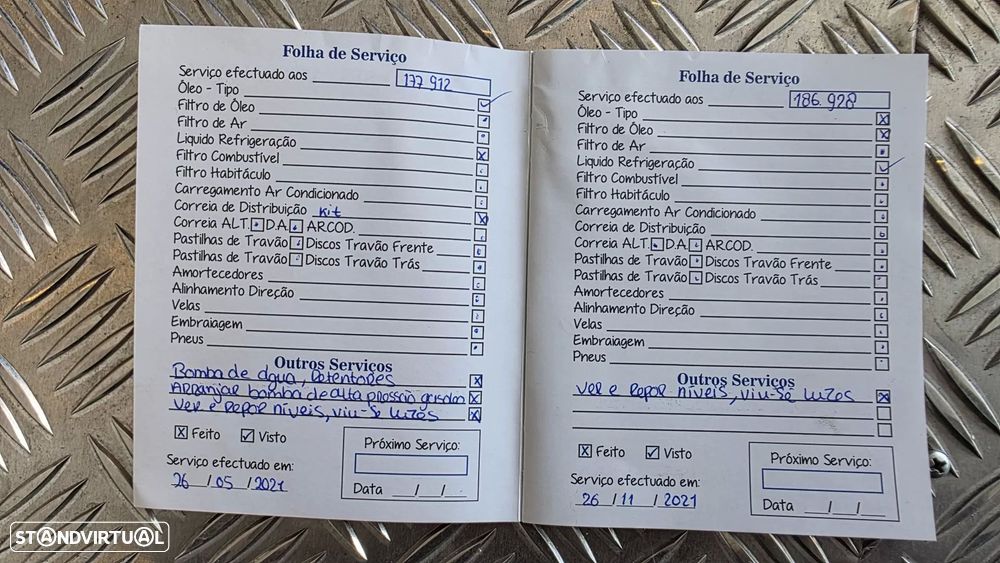 Folha de Serviço
Serviço efectuado aos 177 912
Óleo - Tipo
Filtro de Óleo
Filtro de Ar
Liquido Refrigeração
Filtro Combustível
Filtro Habitáculo
Carregamento Ar Condicionado
Correia de Distribuição Kit
Correia ALT. D.A. ARCOD.
Pastilhas de Travão Discos Travão Frente
Pastilhas de Travão Discos Travão Trás
Amortecedores
Alinhamento Direção
Velas
Embraiagem
Pneus
Outros Serviços
Bomba de água, Retentores
Arranjar bomba de alta pressão gasoleo
Ver e Repor níveis, viu-se luzes
Feito Visto
Serviço efectuado em:
26/05/2021
Próximo Serviço:
Data / /
Folha de Serviço
Serviço efectuado aos 186.928
Óleo - Tipo
Filtro de Óleo
Filtro de Ar
Liquido Refrigeração
Filtro Combustível
Filtro Habitáculo
Carregamento Ar Condicionado
Correia de Distribuição
Correia ALT. D.A. ARCOD.
Pastilhas de Travão Discos Travão Frente
Pastilhas de Travão Discos Travão Trás
Amortecedores
Alinhamento Direção
Velas
Embraiagem
Pneus
Outros Serviços
Ver e Repor níveis, viu-se luzes
Feito Visto
Serviço efectuado em:
26/11/2021
Próximo Serviço:
Data / /
STANDVIRTUAL